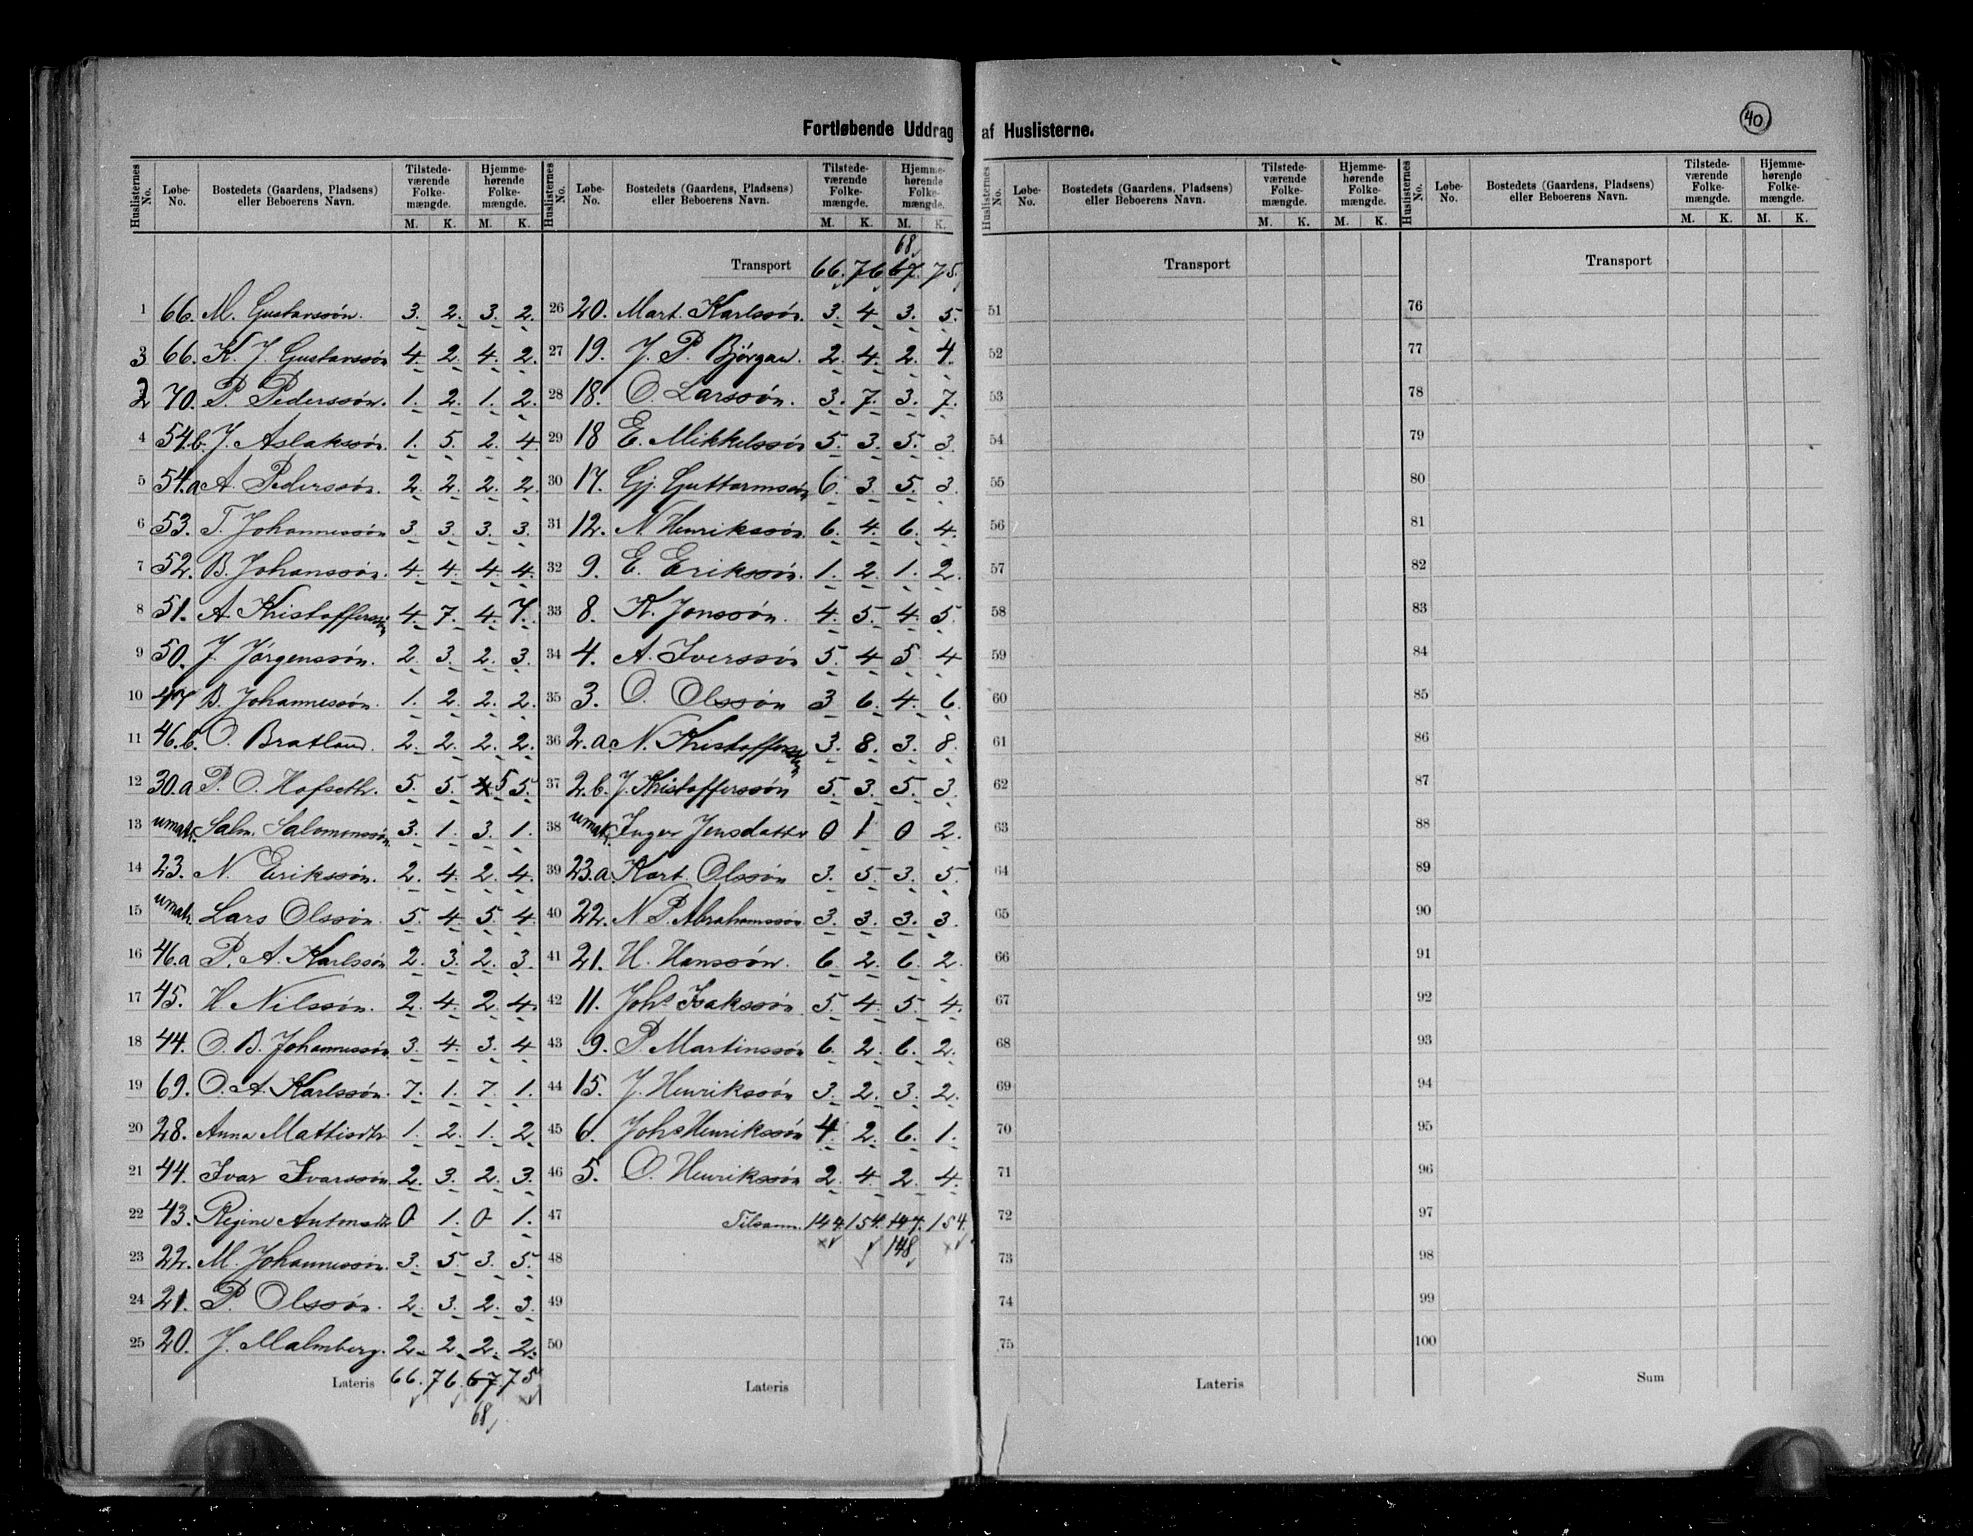 Fortløbende Uddrag af Huslisterne.
40
Huslisternes No. Løbe-No. Bostedets (Gaardens, Pladsens) eller Beboerens Navn. Tilstedeværende Folkemængde. M. K. Hjemmehørende Folkemængde. M. K.
1 66. M. Gustavssøn. 3. 2. 3. 2.
3 66. K. J. Gustavssøn 4. 2. 4. 2.
2 70. P. Pederssøn. 1. 2. 1. 2.
4 54.b. J. Aslakssøn. 1. 5. 2. 4
5 54.a A. Pederssøn. 2. 2. 2. 2.
6 53. T. Johannessøn 3. 3. 3. 3.
7 52. B. Johanssøn. 4. 4. 4. 4.
8 51. A. Kristofferssøn 4. 7. 4. 7.
9 50. J. Jørgenssøn. 2. 3. 2. 3.
10 47 B. Johannessøn. 1. 2. 2. 2.
11 46.b. O. Bratland. 2. 2. 2. 2.
12 30.a P. O. Hofseth. 5. 5. 4 5 5.
13 umatr. Salm. Salomonssøn 3. 1. 3. 1.
14 23. N. Erikssøn. 2. 4. 2. 4.
15 umatr. Lars Olssøn. 5. 4. 5. 4.
16 46.a P. A. Karlssøn 2. 3. 2. 3.
17 45. H. Nilssøn. 2. 4. 2. 4.
18 44. O. B. Johannessøn 3. 4. 3. 4
19 69. O. A. Karlssøn. 7. 1. 7. 1.
20 28. Anna Mattisdtr 1. 2. 1. 2
21 44. Ivar Ivarssøn 2. 3. 2. 3.
22 43. Regine Antonsdtr 0 1. 0 1.
23 22. M. Johannessøn. 3. 5. 3. 5.
24 21. P. Olssøn. 2. 3. 2. 3.
25 20. J. Malmberg. 2. 2. 2. 2.
Lateris 66. 76. 67 75
68
Huslisternes No. Løbe-No. Bostedets (Gaardens, Pladsens) eller Beboerens Navn. Tilstedeværende Folkemængde. M. K. Hjemmehørende Folkemængde. M. K.
68
Transport 66. 76. 67. 75.
26 20. Mart. Karlssøn. 3. 4. 3. 5.
27 19. J. P. Bjørgan. 2. 4. 2. 4.
28 18. O. Larssøn. 3. 7. 3. 7.
29 18 E. Mikkelssøn 5. 3. 5. 3.
30 17. Gj. Guttormssøn 6. 3. 5. 3.
31 12. N. Henrikssøn. 6. 4. 6. 4.
32 9. E. Erikssøn. 1. 2. 1. 2.
33 8. K. Jonssøn. 4. 5. 4. 5.
34 4. A. Iverssøn 5. 4 5. 4
35 3. O. Olssøn 3 6. 4. 6.
36 2.a. N. Kristofferssøn 3. 8. 3. 8.
37 2.b. J. Kristofferssøn 5. 3. 5. 3.
38 umatr. Inger Jensdattr 0 1 0 2.
39 23.a. Kart. Olssøn 3. 5. 3. 5.
40 22. N. P. Abrahamssøn 3. 3. 3. 3.
41 21. H. Hanssøn. 6. 2. 6. 2.
42 11. Johs Isakssøn 5. 4. 5. 4.
43 9. P. Martinssøn 6. 2. 6. 2.
44 15. J. Henrikssøn 3. 2. 3. 2.
45 6. Johs Henrikssøn 4. 2. 6. 1.
46 5. O. Henrikssøn 2. 4. 2. 4.
47 Tilsamm. 144. 154. 147. 154.
48 148
49
50
Lateris
Huslisternes No. Løbe-No. Bostedets (Gaardens, Pladsens) eller Beboerens Navn. Tilstedeværende Folkemængde. M. K. Hjemmehørende Folkemængde. M. K.
Transport
51
52
53
54
55
56
57
58
59
60
61
62
63
64
65
66
67
68
69
70
71
72
73
74
75
Lateris
Huslisternes No. Løbe-No. Bostedets (Gaardens, Pladsens) eller Beboerens Navn. Tilstedeværende Folkemængde. M. K. Hjemmehørende Folkemængde. M. K.
Transport
76
77
78
79
80
81
82
83
84
85
86
87
88
89
90
91
92
93
94
95
96
97
98
99
100
Sum